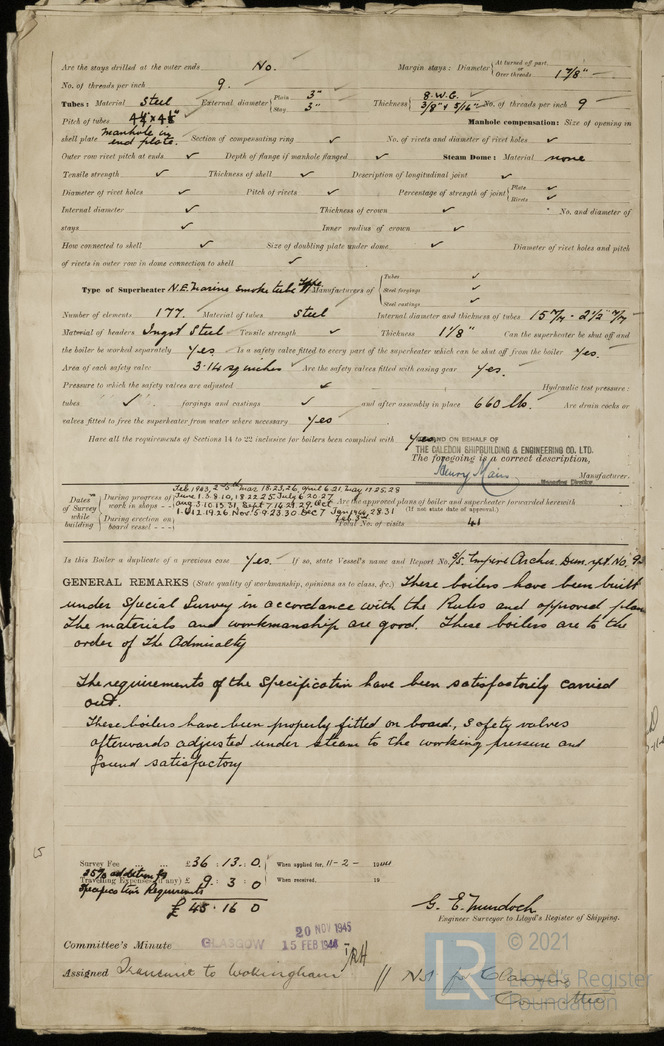 Are the stays drilled at the outer ends No. Margin stays: Diameter { At turned off part, or Over threads 1 7/8"
No. of threads per inch 9.
Tubes: Material Steel External diameter { Plain 3" Stay 3" Thickness { 8.W.G. 3/8" & 5/16" No. of threads per inch 9
Pitch of tubes Manhole compensation: Size of opening in
shell plate Manhole in end plate. Section of compensating ring ✓ No. of rivets and diameter of rivet holes ✓
Outer row rivet pitch at ends ✓ Depth of flange if manhole flanged ✓ Steam Dome: Material none
Tensile strength ✓ Thickness of shell ✓ Description of longitudinal joint ✓
Diameter of rivet holes ✓ Pitch of rivets ✓ Percentage of strength of joint { Plate ✓ Rivets ✓
Internal diameter ✓ Thickness of crown ✓ No. and diameter of
stays ✓ Inner radius of crown ✓
How connected to shell ✓ Size of doubling plate under dome ✓ Diameter of rivet holes and pitch
of rivets in outer row in dome connection to shell ✓
Type of Superheater N.E. Marine smoke tube type Manufacturers of { Tubes ✓ Steel forgings ✓ Steel castings ✓
Number of elements 177. Material of tubes Steel Internal diameter and thickness of tubes 15 m/m - 2½ m/m
Material of headers Ingot Steel Tensile strength ✓ Thickness 1 1/8" Can the superheater be shut off and
the boiler be worked separately Yes Is a safety valve fitted to every part of the superheater which can be shut off from the boiler Yes.
Area of each safety valve 3.14 sq inches Are the safety valves fitted with easing gear Yes.
Pressure to which the safety valves are adjusted ✓ Hydraulic test pressure:
tubes ✓ forgings and castings ✓ and after assembly in place 660 lb. Are drain cocks or
valves fitted to free the superheater from water where necessary Yes
Have all the requirements of Sections 14 to 22 inclusive for boilers been complied with Yes
AND ON BEHALF OF
THE CALEDON SHIPBUILDING & ENGINEERING CO. LTD.
The foregoing is a correct description,
Henry Main Manufacturer.
Managing Director
Dates of Survey while building
During progress of work in shops - -
Feb 1943, 2 5th Mar, 18.23.26, April 6.21. May 17.25.28
June 1.3.8.10.18.22.25. July 6.20.27
Aug 3.10.13.31. Sept 7.14.21.29. Oct
1.6.12.19.26 Nov 5.9.23.30 Dec 7 Jan 1944 28.31
During erection on board vessel - - -
Feb 3
Are the approved plans of boiler and superheater forwarded herewith
(If not state date of approval.)
Total No. of visits 41
Is this Boiler a duplicate of a previous case Yes. If so, state Vessel's name and Report No. S/S. Empire Archer. Dun. rpt. No. 9
GENERAL REMARKS (State quality of workmanship, opinions as to class, &c.) These boilers have been built
under Special Survey in accordance with the Rules and approved plan
The materials and workmanship are good. These boilers are to the
order of The Admiralty
The requirements of the Specification have been satisfactorily carried
out.
These boilers have been properly fitted on board, Safety valves
afterwards adjusted under steam to the working pressure and
found satisfactory
Survey Fee ... ... £36 : 13 : 0 When applied for, 11 - 2 - 1944
25% addition for
Travelling Expenses (if any) £ 9 : 3 : 0 When received, 19
Specification Requirements
£ 45 . 16 0
G. E. Murdoch
Engineer Surveyor to Lloyd's Register of Shipping.
20 NOV 1945
Committee's Minute GLASGOW 15 FEB 1944
Assigned Transmit to Wokingham
Committee
LR
© 2021
Lloyd's Register
Foundation